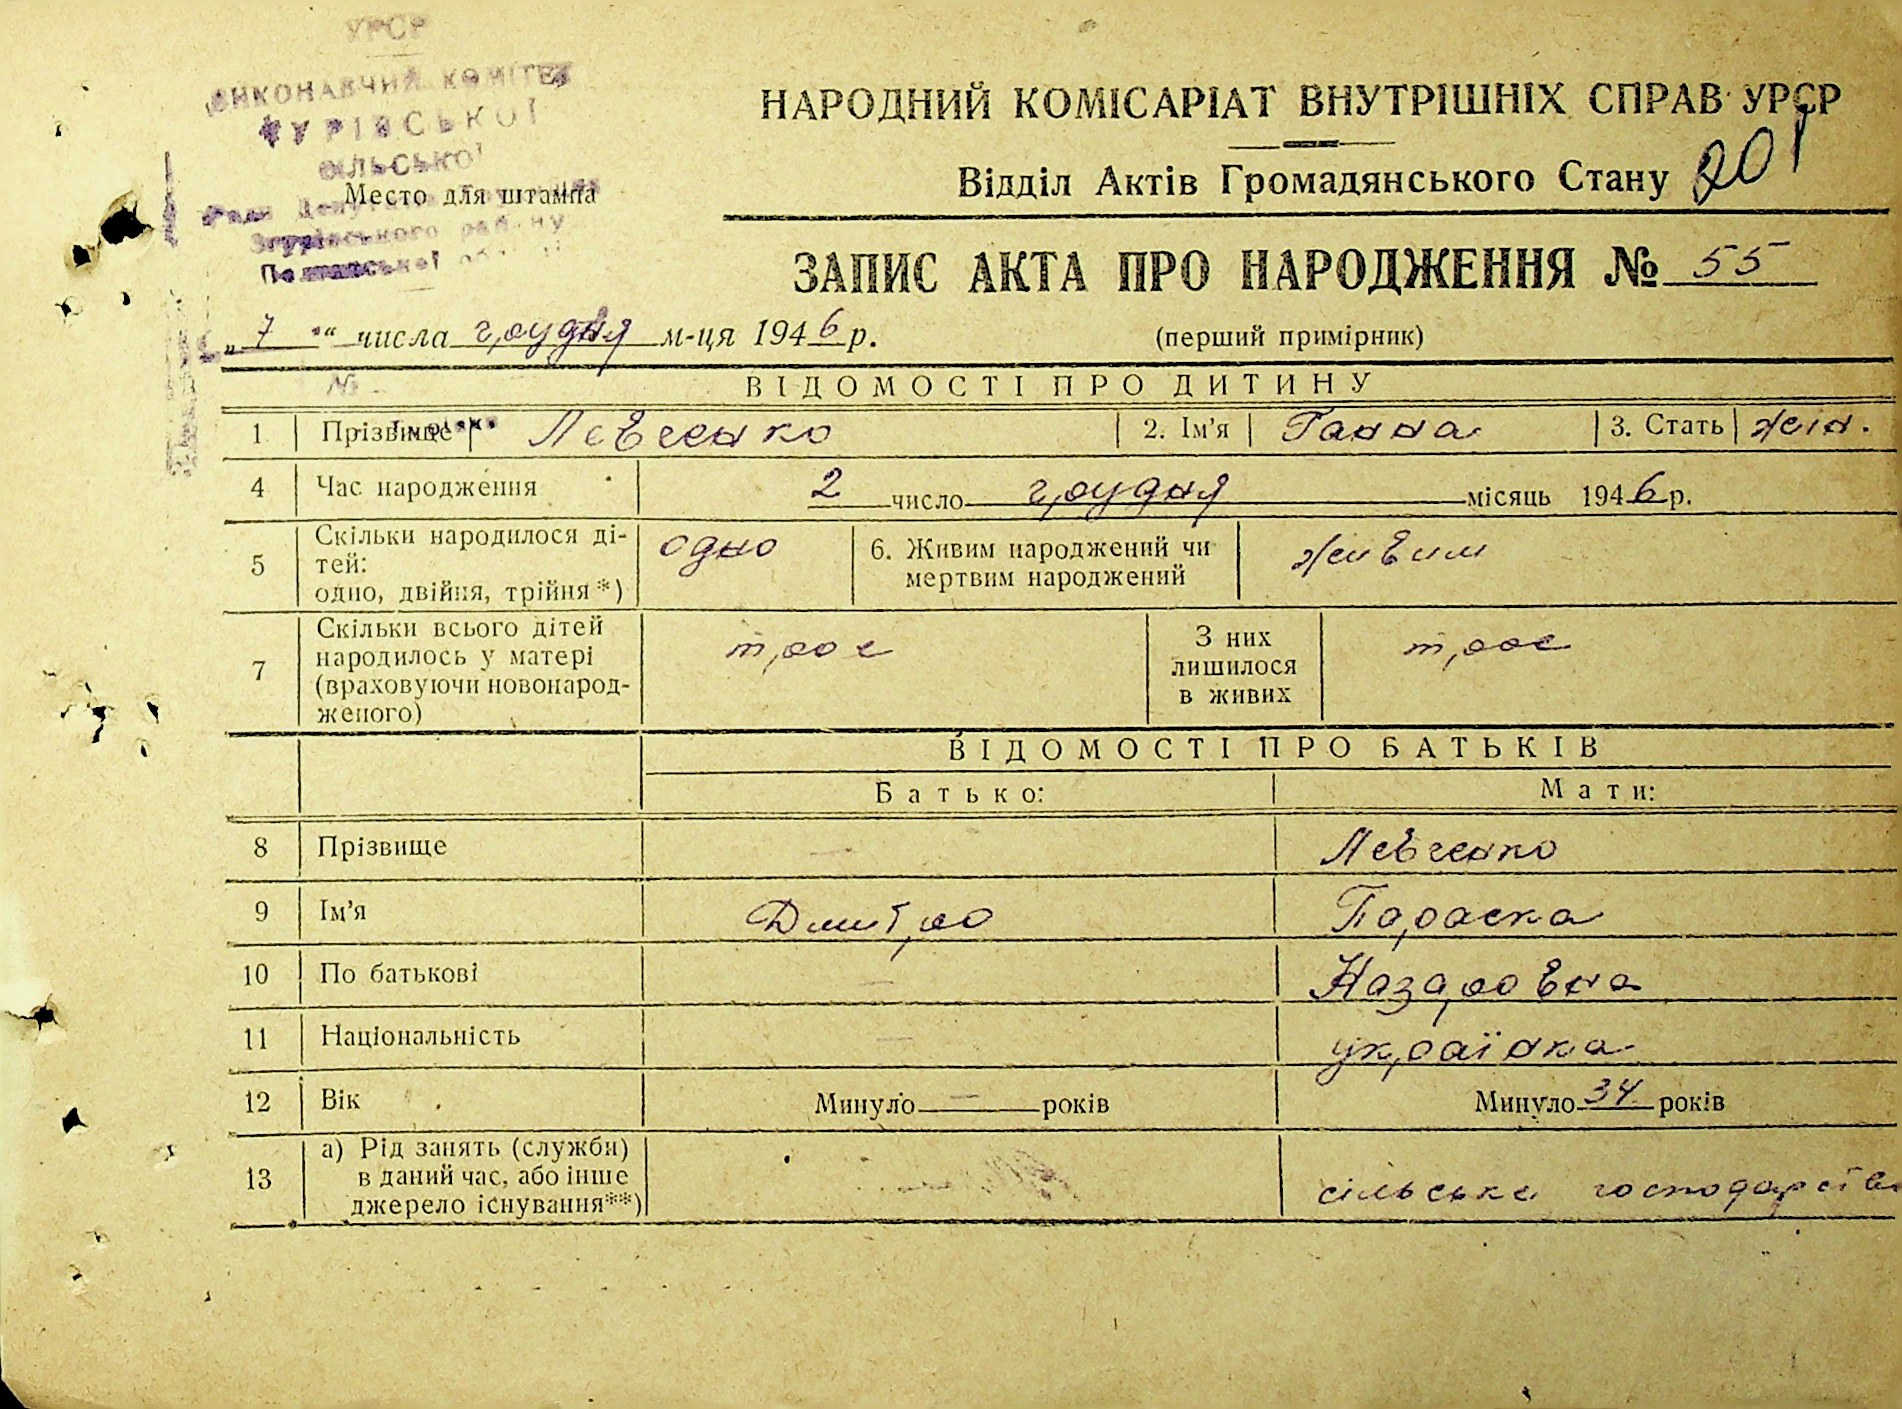 УРСР
ВИКОНАВЧИЙ КОМІТЕТ
ТУРІВСЬКОЇ
СІЛЬСЬКОЇ
Место для штампа
Ради Депутатів
Згурівського району
Полтавської
НАРОДНИЙ КОМІСАРІАТ ВНУТРІШНІХ СПРАВ УРСР
Відділ Актів Громадянського Стану 201
ЗАПИС АКТА ПРО НАРОДЖЕННЯ № 55
„ 7 “ числа грудня м-ця 1946 р. (перший примірник)
№
ВІДОМОСТІ ПРО ДИТИНУ
1 Прізвище Левченко 2. Ім'я Ганна 3. Стать жін.
4 Час народження 2 число грудня місяць 1946 р.
5 Скільки народилося ді-
тей:
одно, двійня, трійня*) одно 6. Живим народжений чи
мертвим народжений живим
7 Скільки всього дітей
народилось у матері
(враховуючи новонарод-
женого) троє З них
лишилося
в живих троє
ВІДОМОСТІ ПРО БАТЬКІВ
Батько: Мати:
8 Прізвище — Левченко
9 Ім'я Дмитро Параска
10 По батькові — Назаровна
11 Національність — українка
12 Вік Минуло — років Минуло 34 років
13 а) Рід занять (служби)
в даний час, або інше
джерело існування**) сільське господарств